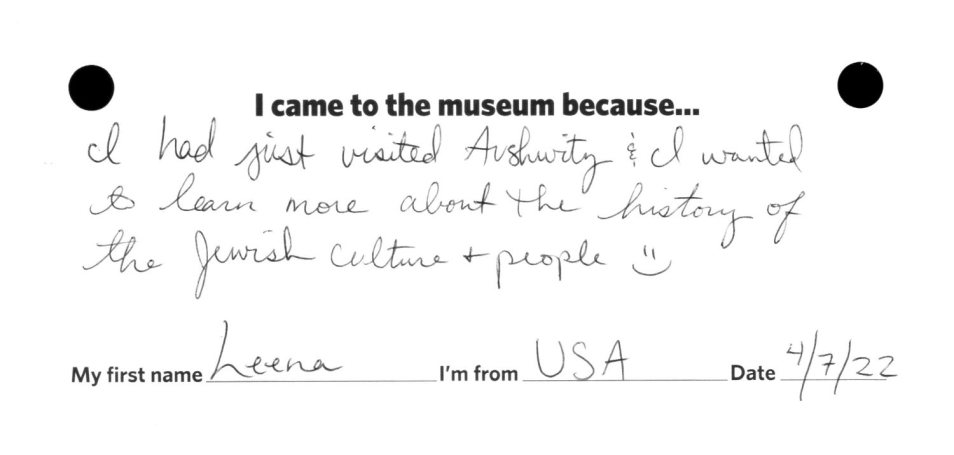 I came to the museum because...
I had just visited Aushwitz & I wanted
to learn more about the history of
the Jewish culture + people :)
My first name Leena I'm from USA Date 4/7/22